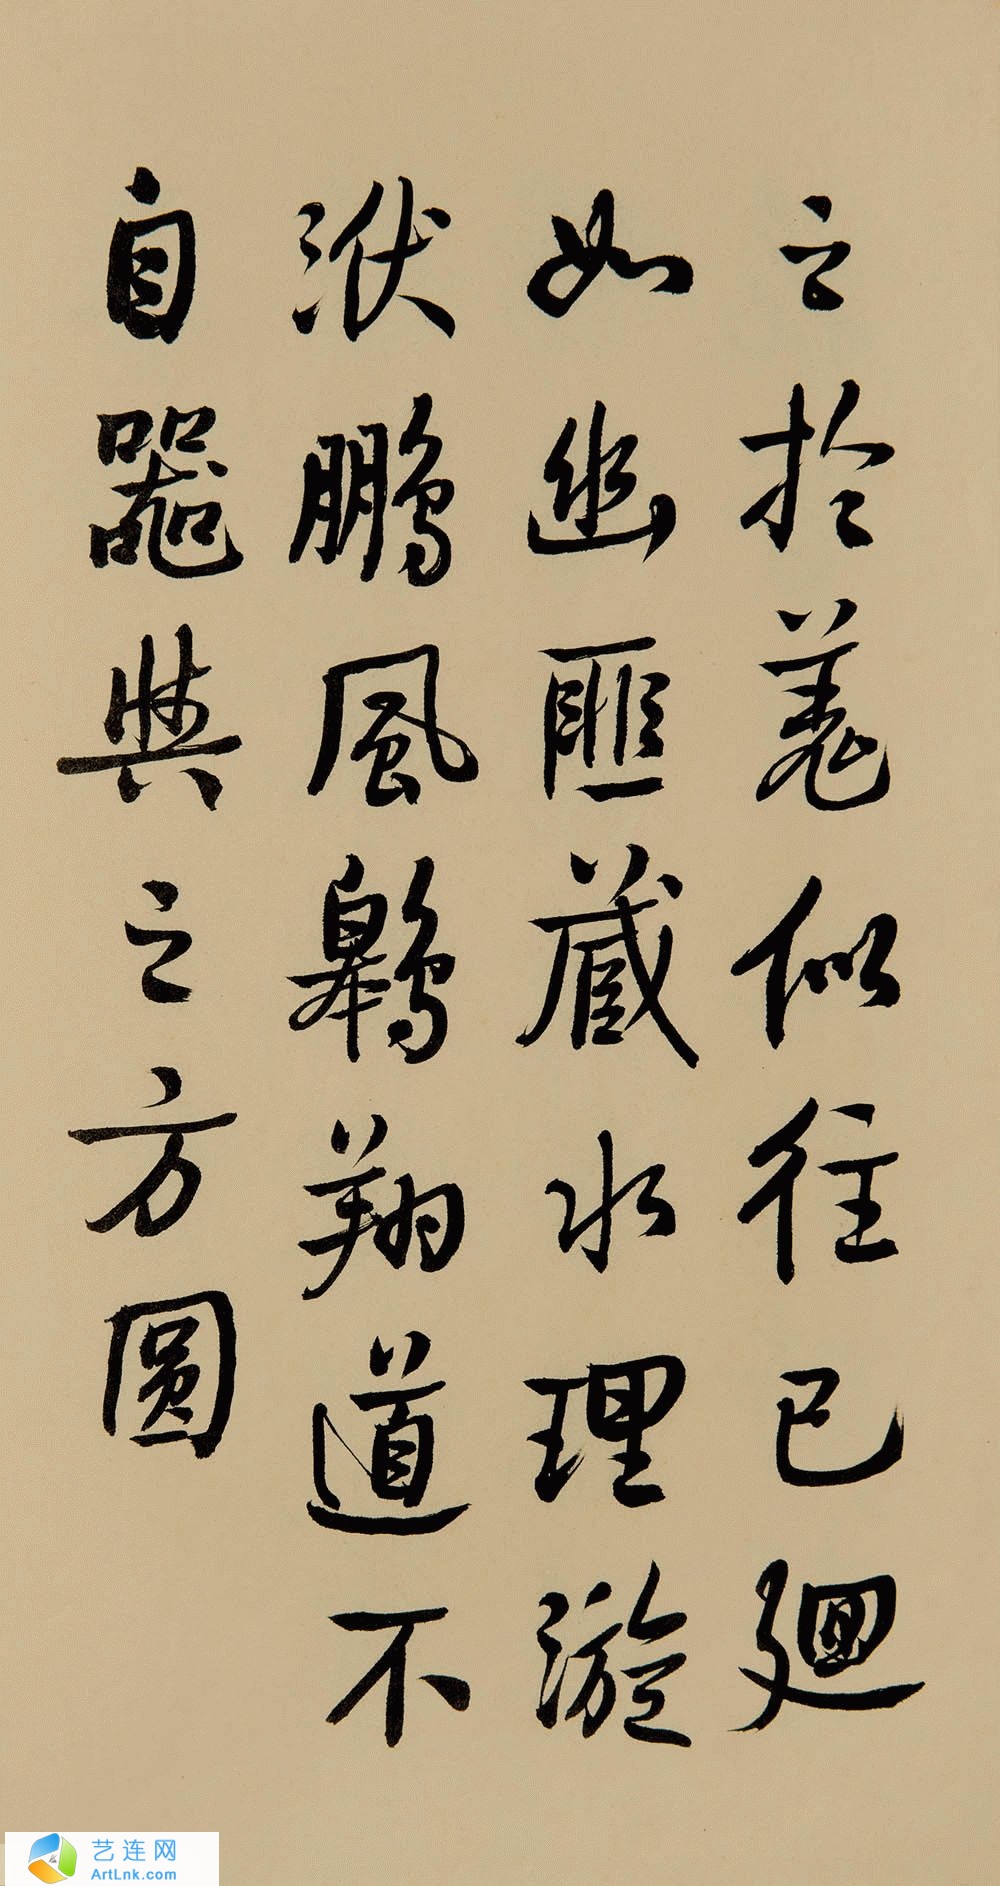 之於羌似往已廻
如幽匪藏水理漩
洑鵬風鷱翔道不
自器與之方圓
艺连网
ArtLnk.com